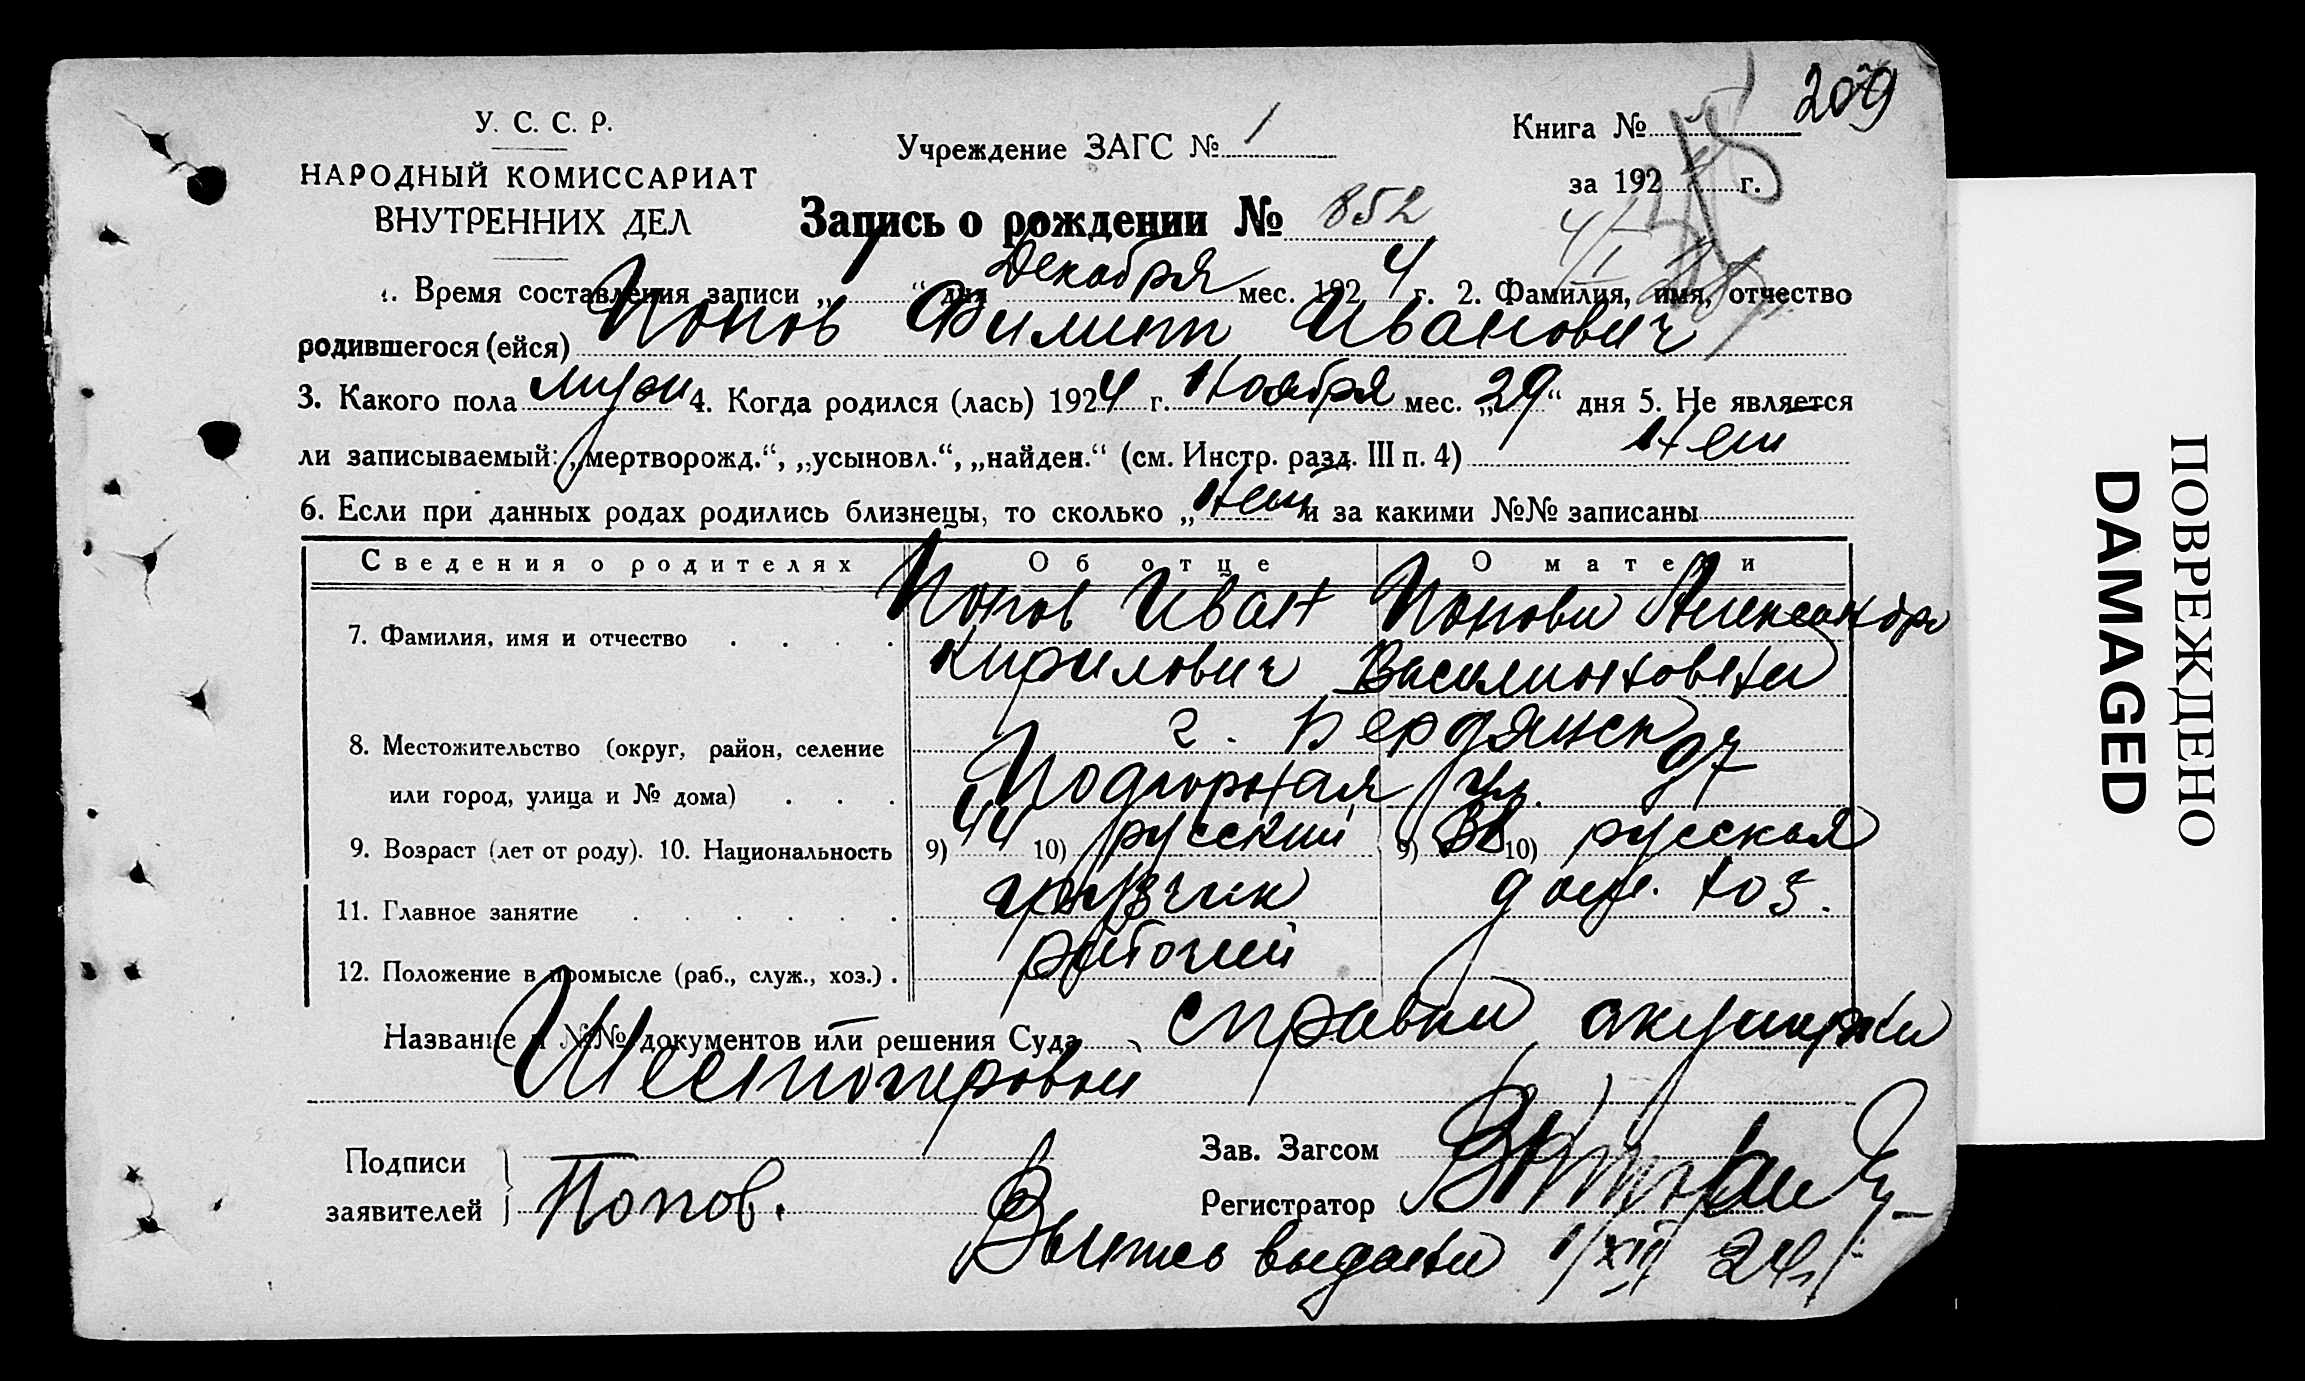 209
У. С. С. Р.
НАРОДНЫЙ КОМИССАРИАТ
ВНУТРЕННИХ ДЕЛ
Учреждение ЗАГС № 1
Книга №
за 192 г.
Запись о рождении № 852
1. Время составления записи „1“ дня Декабря мес. 1924 г. 2. Фамилия, имя, отчество
родившегося (ейся) Попов Филипп Иванович
3. Какого пола муж 4. Когда родился (лась) 1924 г. Ноября мес. „29“ дня 5. Не является
ли записываемый: „мертворожд.“, „усыновл.“, „найден.“ (см. Инстр. разд. III п. 4) Нет
6. Если при данных родах родились близнецы, то сколько „Нет и за какими №№ записаны
Сведения о родителях Об отце О матери
7. Фамилия, имя и отчество Попов Иван Попова Александра
Кирилович
8. Местожительство (округ, район, селение г. Бердянск
или город, улица и № дома) Подгорная ул. 97
9. Возраст (лет от роду). 10. Национальность 9) 44 10) русский 9) 10) русская
11. Главное занятие грузчик дом. хоз.
12. Положение в промысле (раб., служ., хоз.) рабочий
Название и №№ документов или решения Суда справка акушерки
Подписи
заявителей Попов.
Зав. Загсом
Регистратор
Выпись выдана 1/XII 24 г.
ПОВРЕЖДЕНО
DAMAGED